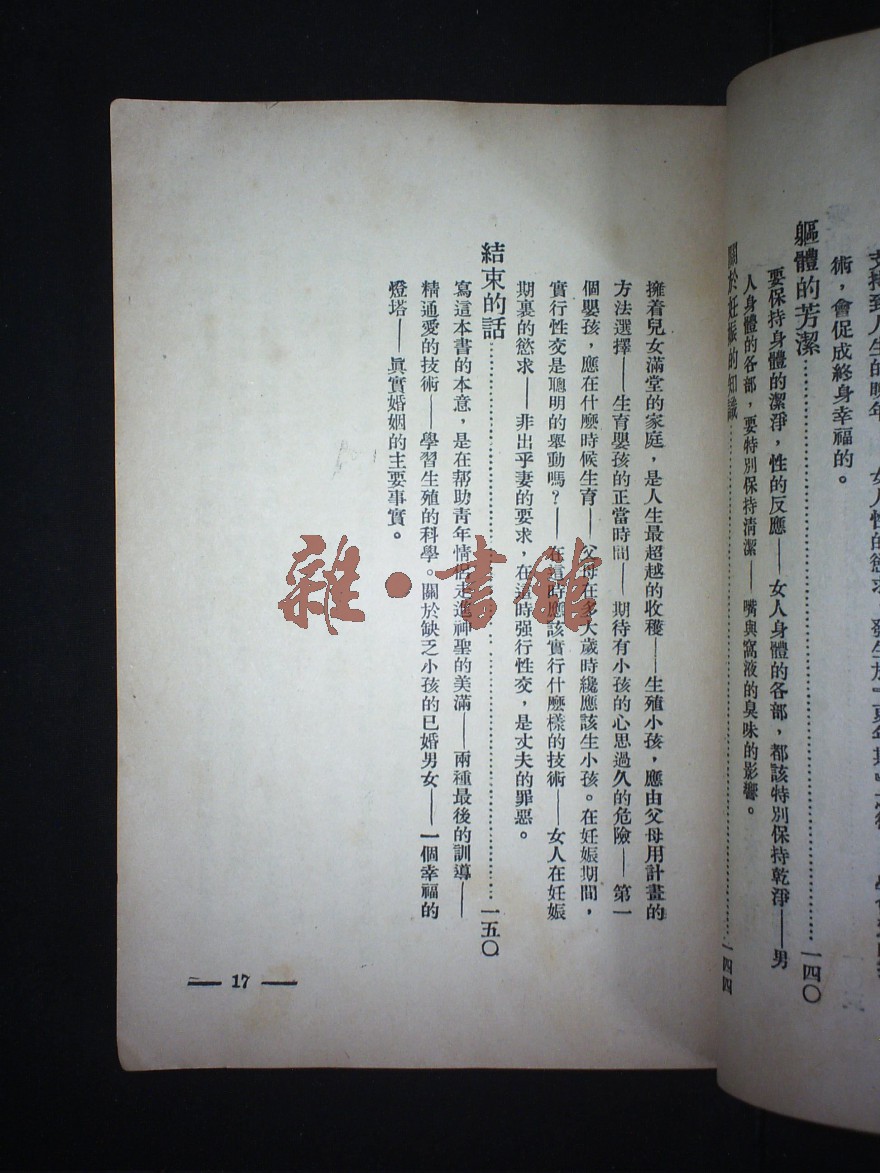 術，會促成終身幸福的。
軀體的芳潔……一四〇
要保持身體的潔淨，性的反應——女人身體的各部，都該特別保持乾淨——男
人身體的各部，要特別保持清潔——嘴與窩液的臭味的影響。
關於妊娠的知識……一四四
擁着兒女滿堂的家庭，是人生最超越的收穫——生殖小孩，應由父母用計畫的
方法選擇——生育嬰孩的正當時間——期待有小孩的心思過久的危險——第一
個嬰孩，應在什麼時候生育——父母在多大歲時纔應該生小孩。在妊娠期間，
實行性交是聰明的舉動嗎？——在這時應該實行什麼樣的技術——女人在妊娠
期裏的慾求——非出乎妻的要求，在這時强行性交，是丈夫的罪惡。
結束的話……一五〇
寫這本書的本意，是在幫助青年情侶走進神聖的美滿——兩種最後的訓導——
精通愛的技術——學習生殖的科學。關於缺乏小孩的已婚男女——一個幸福的
燈塔——眞實婚姻的主要事實。
— 17 —
雜·書館